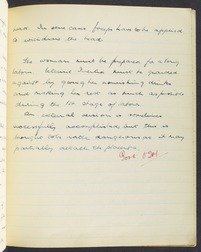 used. In some cases forceps have to be applied
to the head.
The woman must be prepared for a long
labour. Uterine Inertia must be guarded
against by giving her nourishing drinks
and making her rest as much as possible
during the 1st stage of labour.
An external version is sometimes
successfully accomplished, but this is
thought to be rather dangerous as it may
partially detach the placenta.
Good